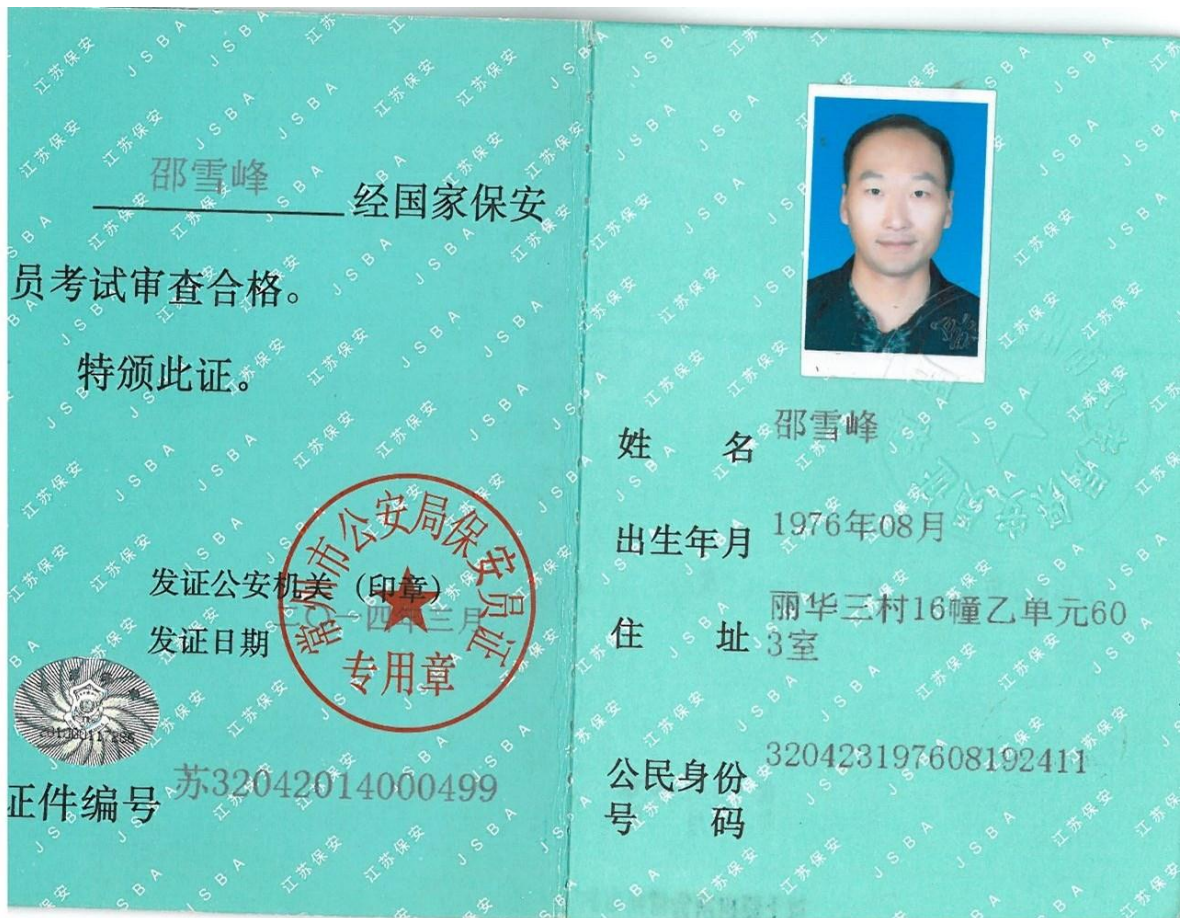 邵雪峰 经国家保安
员考试审查合格。
特颁此证。
发证公安机关（印章）
发证日期 二〇一四年三月
常州市公安局保安员证
专用章
证件编号 苏32042014000499
姓 名 邵雪峰
出生年月 1976年08月
住 址 丽华三村16幢乙单元60
3室
公民身份 320423197608192411
号 码
江苏保安
JSBA